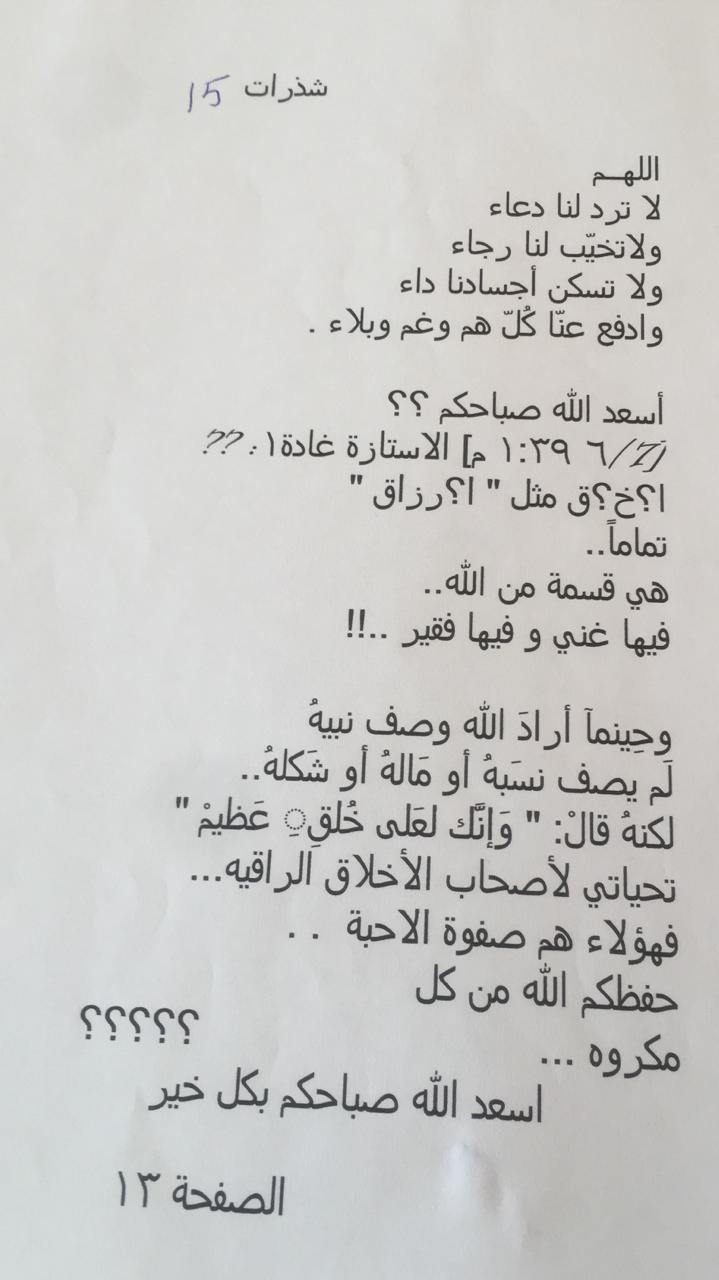 شذرات 15
اللهــم
لا ترد لنا دعاء
ولاتخيّب لنا رجاء
ولا تسكن أجسادنا داء
وادفع عنّا كُلّ هم وغم وبلاء .
أسعد الله صباحكم ؟؟
٦/7] ١:٣٩ م] الاستازة غادة١: ??
ا؟خ؟ق مثل " ا؟رزاق "
تماماً..
هي قسمة من الله..
فيها غني و فيها فقير ..!!
وحِينمآ أرادَ الله وصف نبيهُ
لَم يصف نسَبهُ أو مَالهُ أو شَكلهُ..
لكنهُ قالْ: " وَإنَّك لعَلى خُلقِ ِ عَظيمْ "
تحياتي لأصحاب الأخلاق الراقيه...
فهؤلاء هم صفوة الاحبة . .
حفظكم الله من كل
مكروه ... ؟؟؟؟؟
اسعد الله صباحكم بكل خير
الصفحة ١٣